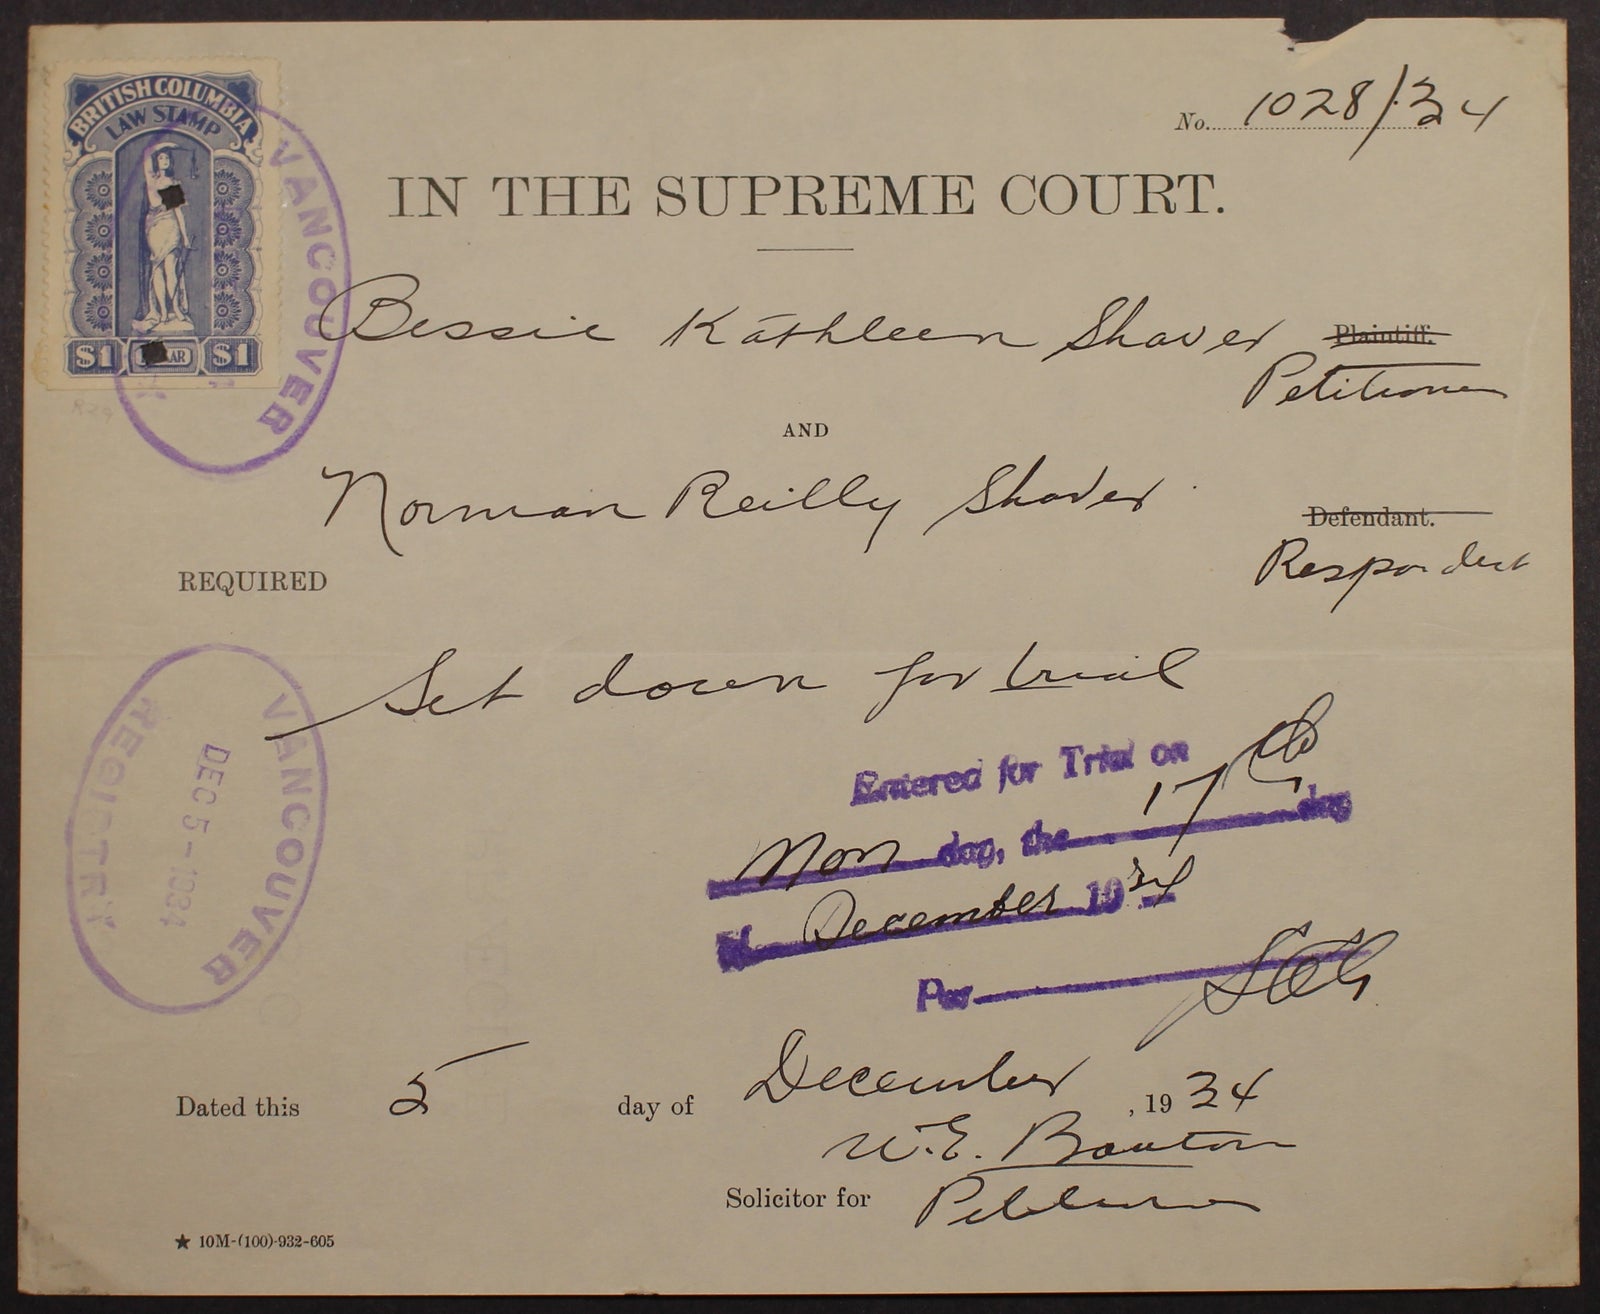 BRITISH COLUMBIA
LAW STAMP
$1 $1
VANCOUVER
R29
No. 1028/34
IN THE SUPREME COURT.
Bessie Kathleen Shaver Plaintiff.
Petitioner
AND
Norman Reilly Shaver Defendant.
Respondent
REQUIRED
Set down for trial
VANCOUVER
DEC 5 - 1934
REGISTRY
Entered for Trial on
Mon day, the 17th day
of December 1934
Per
Dated this 5 day of December, 1934
W.E.
Solicitor for Petitioner
★ 10M-(100)-932-605